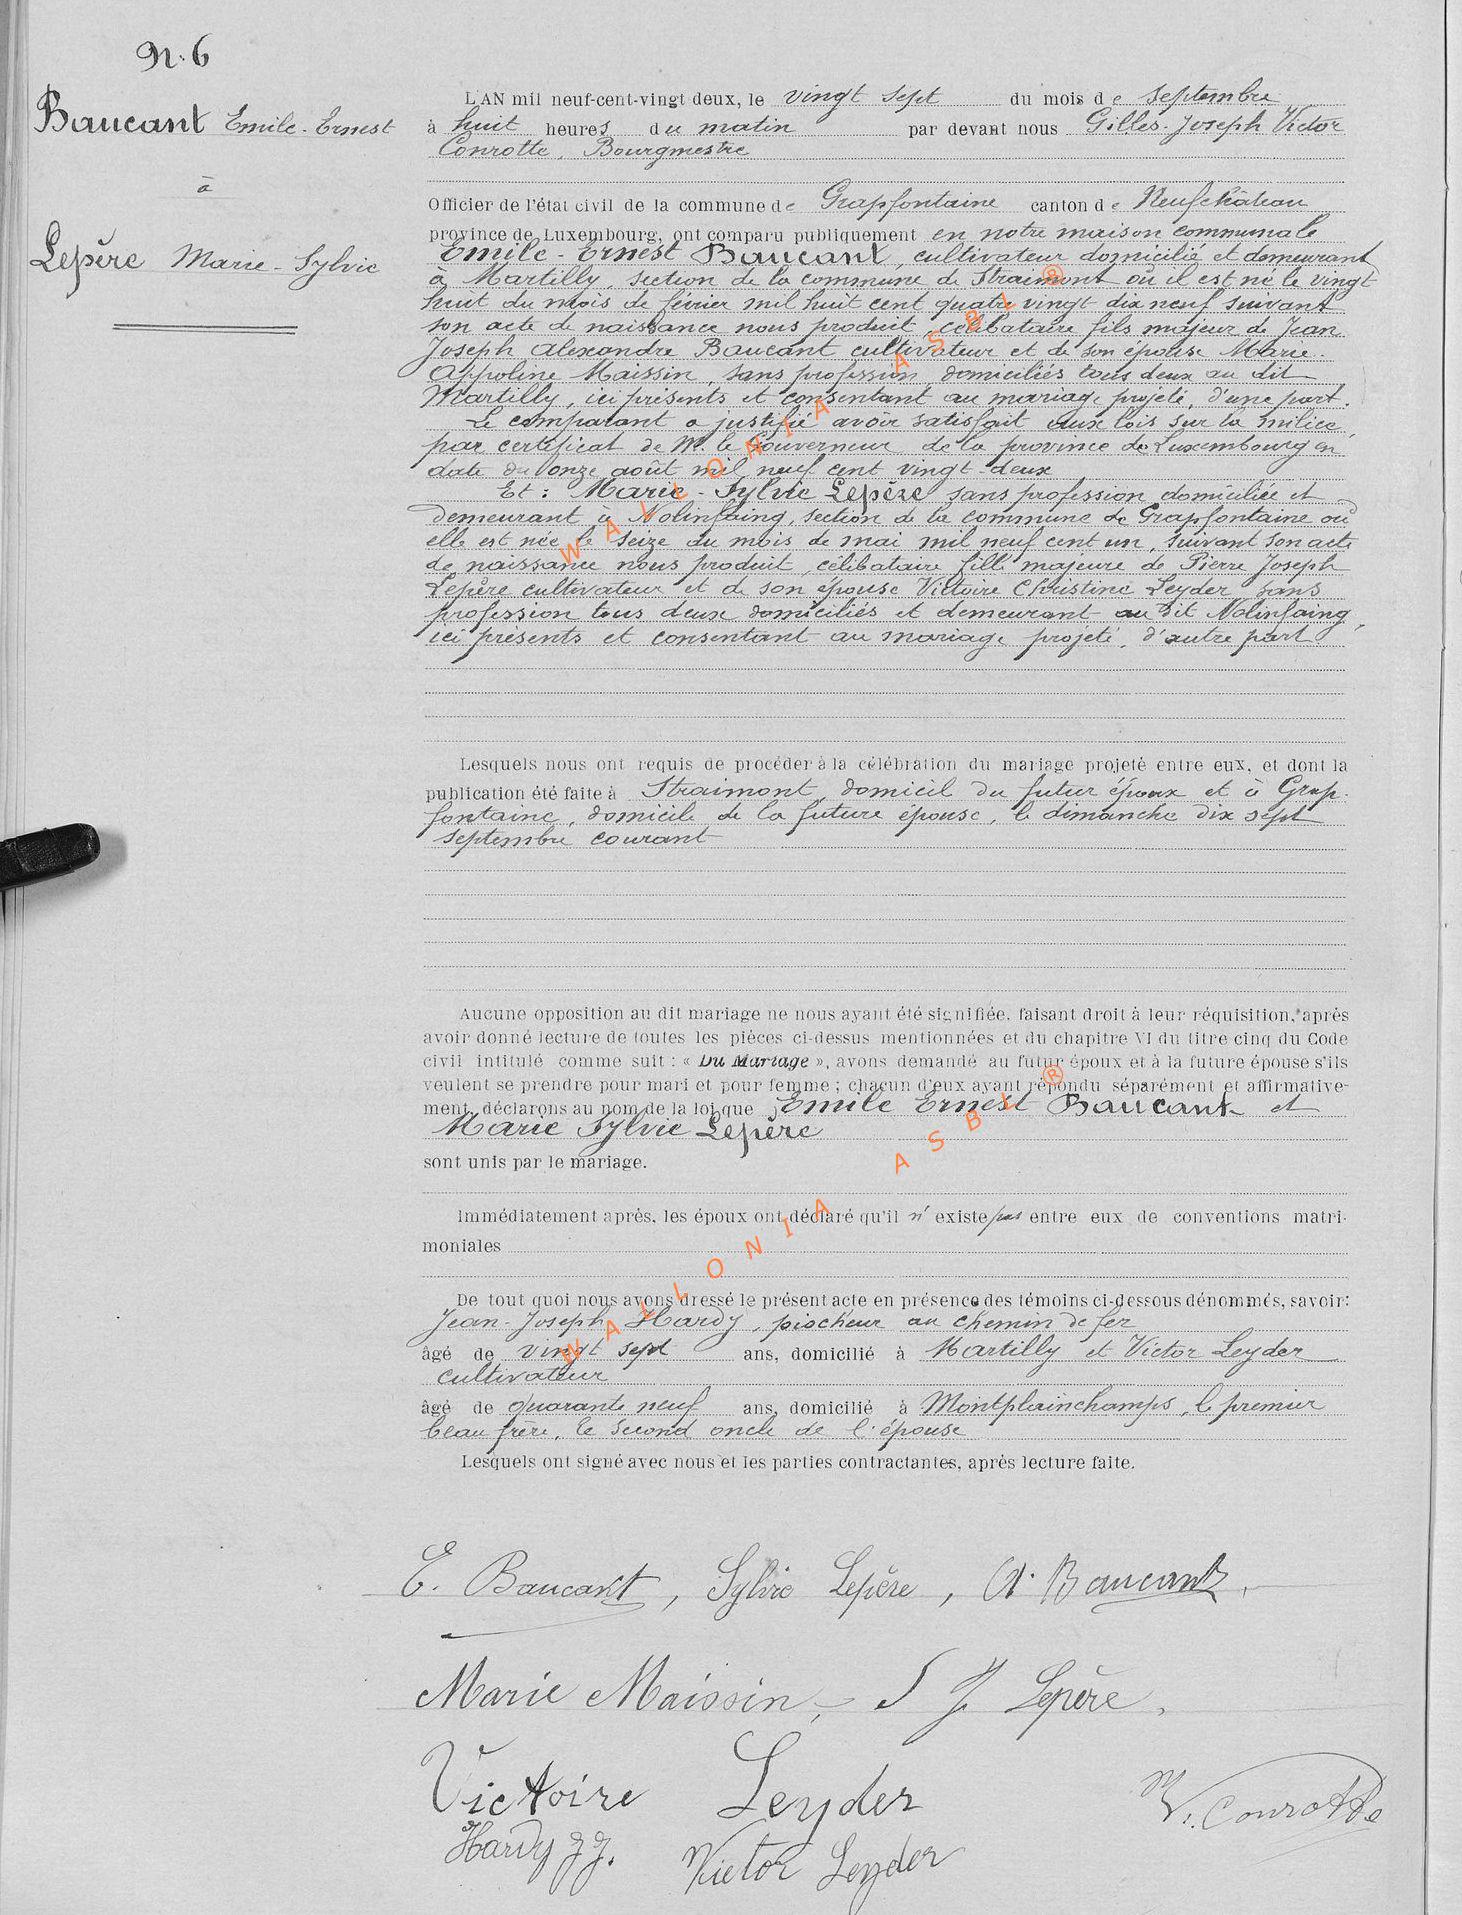 N. 6
Baucant Emile-Ernest
à
Lepère Marie-Sylvie
L'AN mil neuf-cent-vingt deux, le vingt sept du mois de septembre
à huit heures du matin par devant nous Gilles-Joseph Victor
Conrotte, Bourgmestre
Officier de l'état civil de la commune de Grapfontaine canton de Neufchâteau
province de Luxembourg, ont comparu publiquement en notre maison communale
Emile-Ernest Baucant, cultivateur domicilié et demeurant
à Martilly, section de la commune de Straimont où il est né le vingt
huit du mois de février mil huit cent quatre vingt dix neuf suivant
son acte de naissance nous produit, célibataire fils majeur de Jean
Joseph Alexandre Baucant cultivateur et de son épouse Marie-
Appoline Maissin, sans profession, domiciliés tous deux au dit
Martilly, ici présents et consentant au mariage projeté, d'une part.
Le comparant a justifié avoir satisfait aux lois sur la milice,
par certificat de M. le Gouverneur de la province de Luxembourg en
date du onze août mil neuf cent vingt-deux
Et: Marie-Sylvie Lepère sans profession domiciliée et
demeurant à Nolinfaing, section de la commune de Grapfontaine où
elle est née le seize du mois de mai mil neuf cent un, suivant son acte
de naissance nous produit, célibataire fille majeure de Pierre Joseph
Lepère cultivateur et de son épouse Victoire Christine Leyder sans
profession tous deux domiciliés et demeurant au dit Nolinfaing,
ici présents et consentant au mariage projeté, d'autre part
Lesquels nous ont requis de procéder à la célébration du mariage projeté entre eux, et dont la
publication été faite à Straimont, domicil du futur époux et à Grap-
fontaine, domicile de la future épouse, le dimanche dix sept
septembre courant
Aucune opposition au dit mariage ne nous ayant été signifiée, faisant droit à leur réquisition, après
avoir donné lecture de toutes les pièces ci-dessus mentionnées et du chapitre VI du titre cinq du Code
civil intitulé comme suit : « Du Mariage », avons demandé au futur époux et à la future épouse s'ils
veulent se prendre pour mari et pour femme ; chacun d'eux ayant répondu séparément et affirmative-
ment, déclarons au nom de la loi que Emile Ernest Baucant et
Marie Sylvie Lepère
sont unis par le mariage.
Immédiatement après, les époux ont déclaré qu'il n' existe pas entre eux de conventions matri-
moniales
De tout quoi nous avons dressé le présent acte en présence des témoins ci-dessous dénommés, savoir:
Jean-Joseph Hardy, piocheur au chemin de fer
âgé de vingt sept ans, domicilié à Martilly et Victor Leyder
cultivateur
âgé de quarante neuf ans, domicilié à Montplainchamps, le premier
beau frère, le second oncle de l'épouse
Lesquels ont signé avec nous et les parties contractantes, après lecture faite.
E. Baucant, Sylvie Lepère, A. Baucant,
Marie Maissin, J Lepère,
Victoire Leyder
V. Conrotte
Hardy J J. Victor Leyder
WALLONIA ASBL ®
WALLONIA ASBL ®